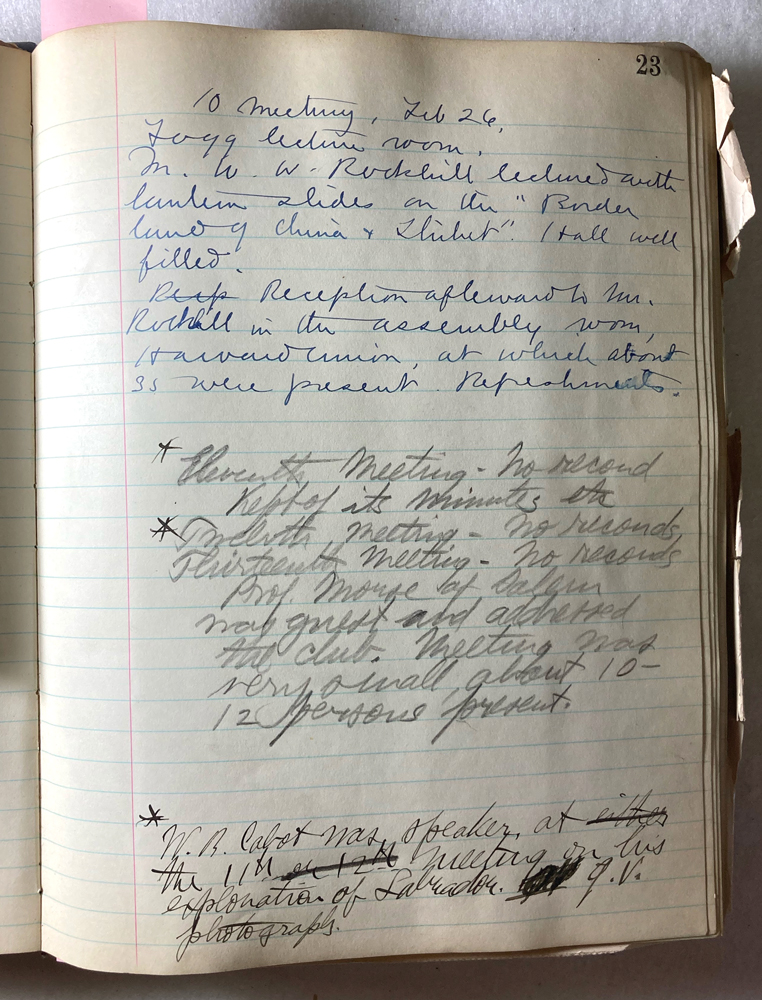 23
10 Meeting, Feb 26,
Fogg lecture room.
Mr. W. W. Rockhill lectured with
lantern slides on the "Border
land of China & Thibet". Hall well
filled.
Recep Reception afterward to Mr.
Rockhill in the assembly room,
Harvard Union, at which about
35 were present. Refreshments.
* Eleventh Meeting - No record
kept of its minutes etc
* Twelvth Meeting - No records
Thirteenth Meeting - No records
Prof. Morse of Salem
was guest and addressed
the club. Meeting was
very small, about 10-
12 persons present.
*
W. B. Cabot was speaker at either
the 11th or 12th meeting on his
exploration of Labrador. q.v.
photographs.